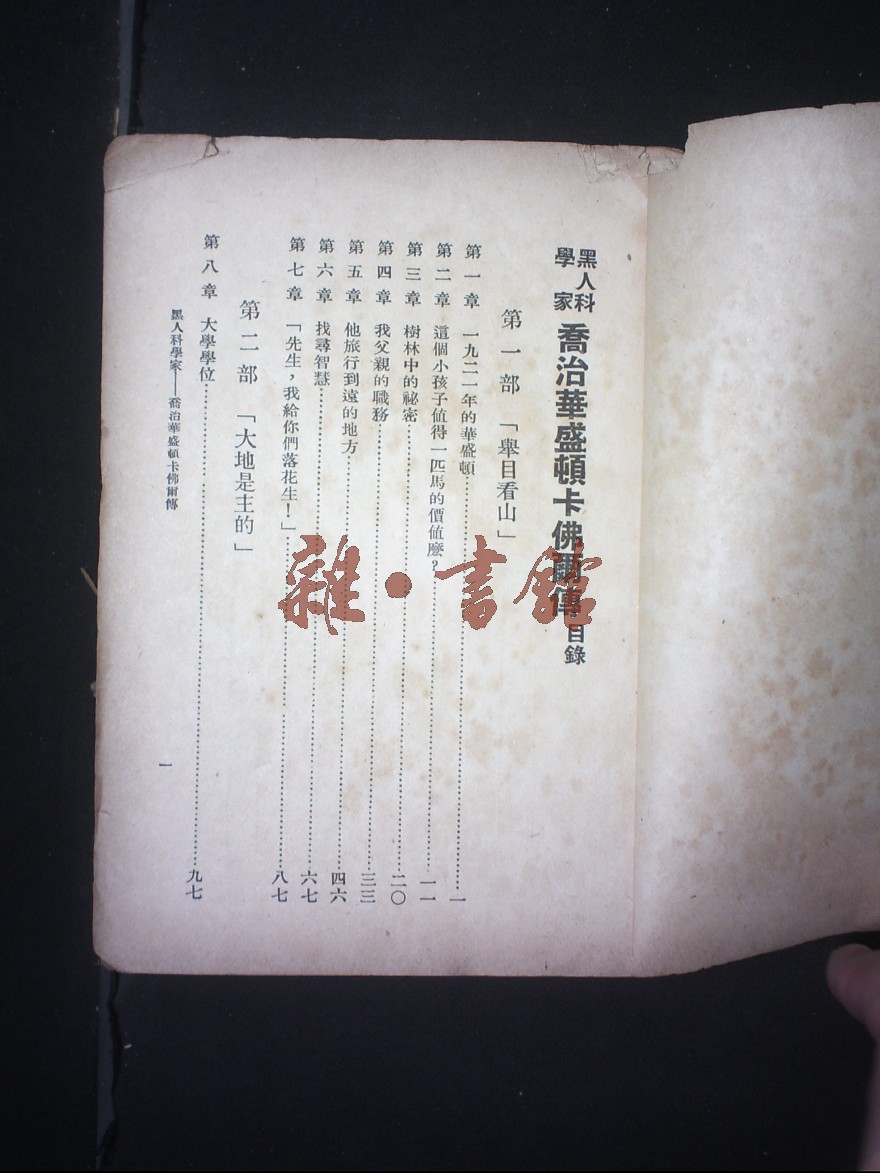 黑人科學家 喬治華盛頓卡佛爾傳 目錄
第一部 「舉目看山」
第一章 一九二一年的華盛頓 一
第二章 這個小孩子值得一匹馬的價值麽? 一一
第三章 樹林中的祕密 二〇
第四章 我父親的職務 三三
第五章 他旅行到遠的地方 四六
第六章 找尋智慧 六七
第七章 「先生,我給你們落花生!」 八七
第二部 「大地是主的」
第八章 大學學位 九七
黑人科學家——喬治華盛頓卡佛爾傳
一
雜·書館